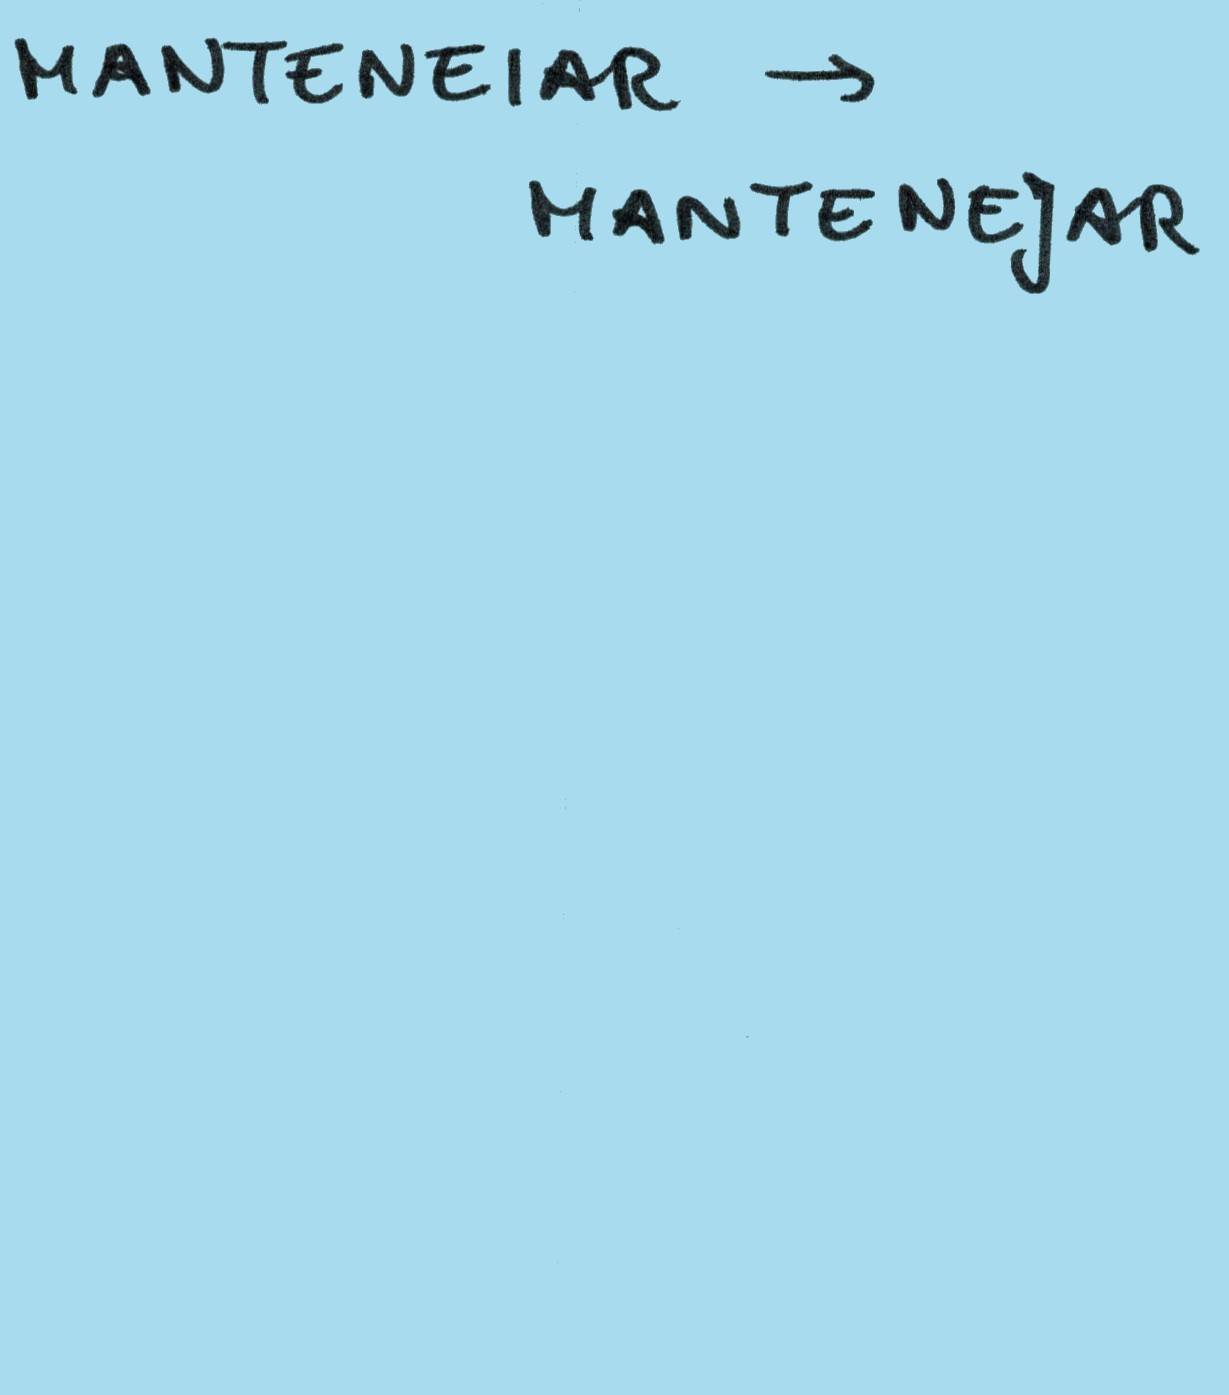 MANTENEIAR →
MANTENEJAR